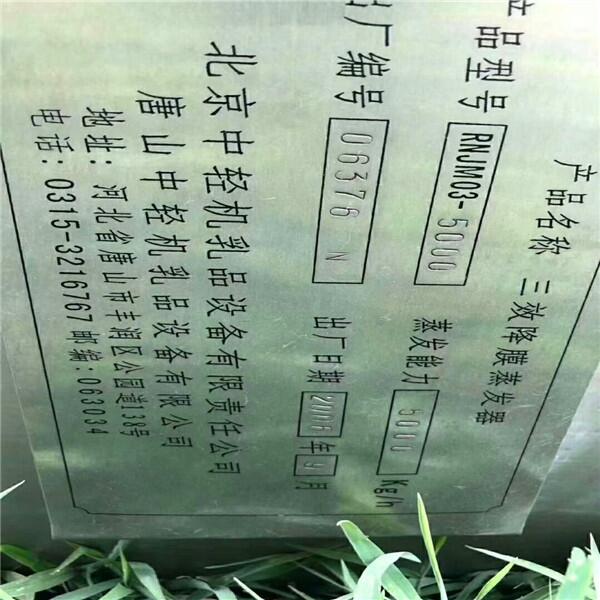 产品名称 三效降膜蒸发器
产品型号 RNJM03-5000 蒸发能力 5000 Kg/h
出厂编号 06376 N 出厂日期 2006 年 9 月
北京中轻机乳品设备有限责任公司
唐山中轻机乳品设备有限公司
地址：河北省唐山市丰润区公园道138号
电话：0315-3216767 邮编：063034